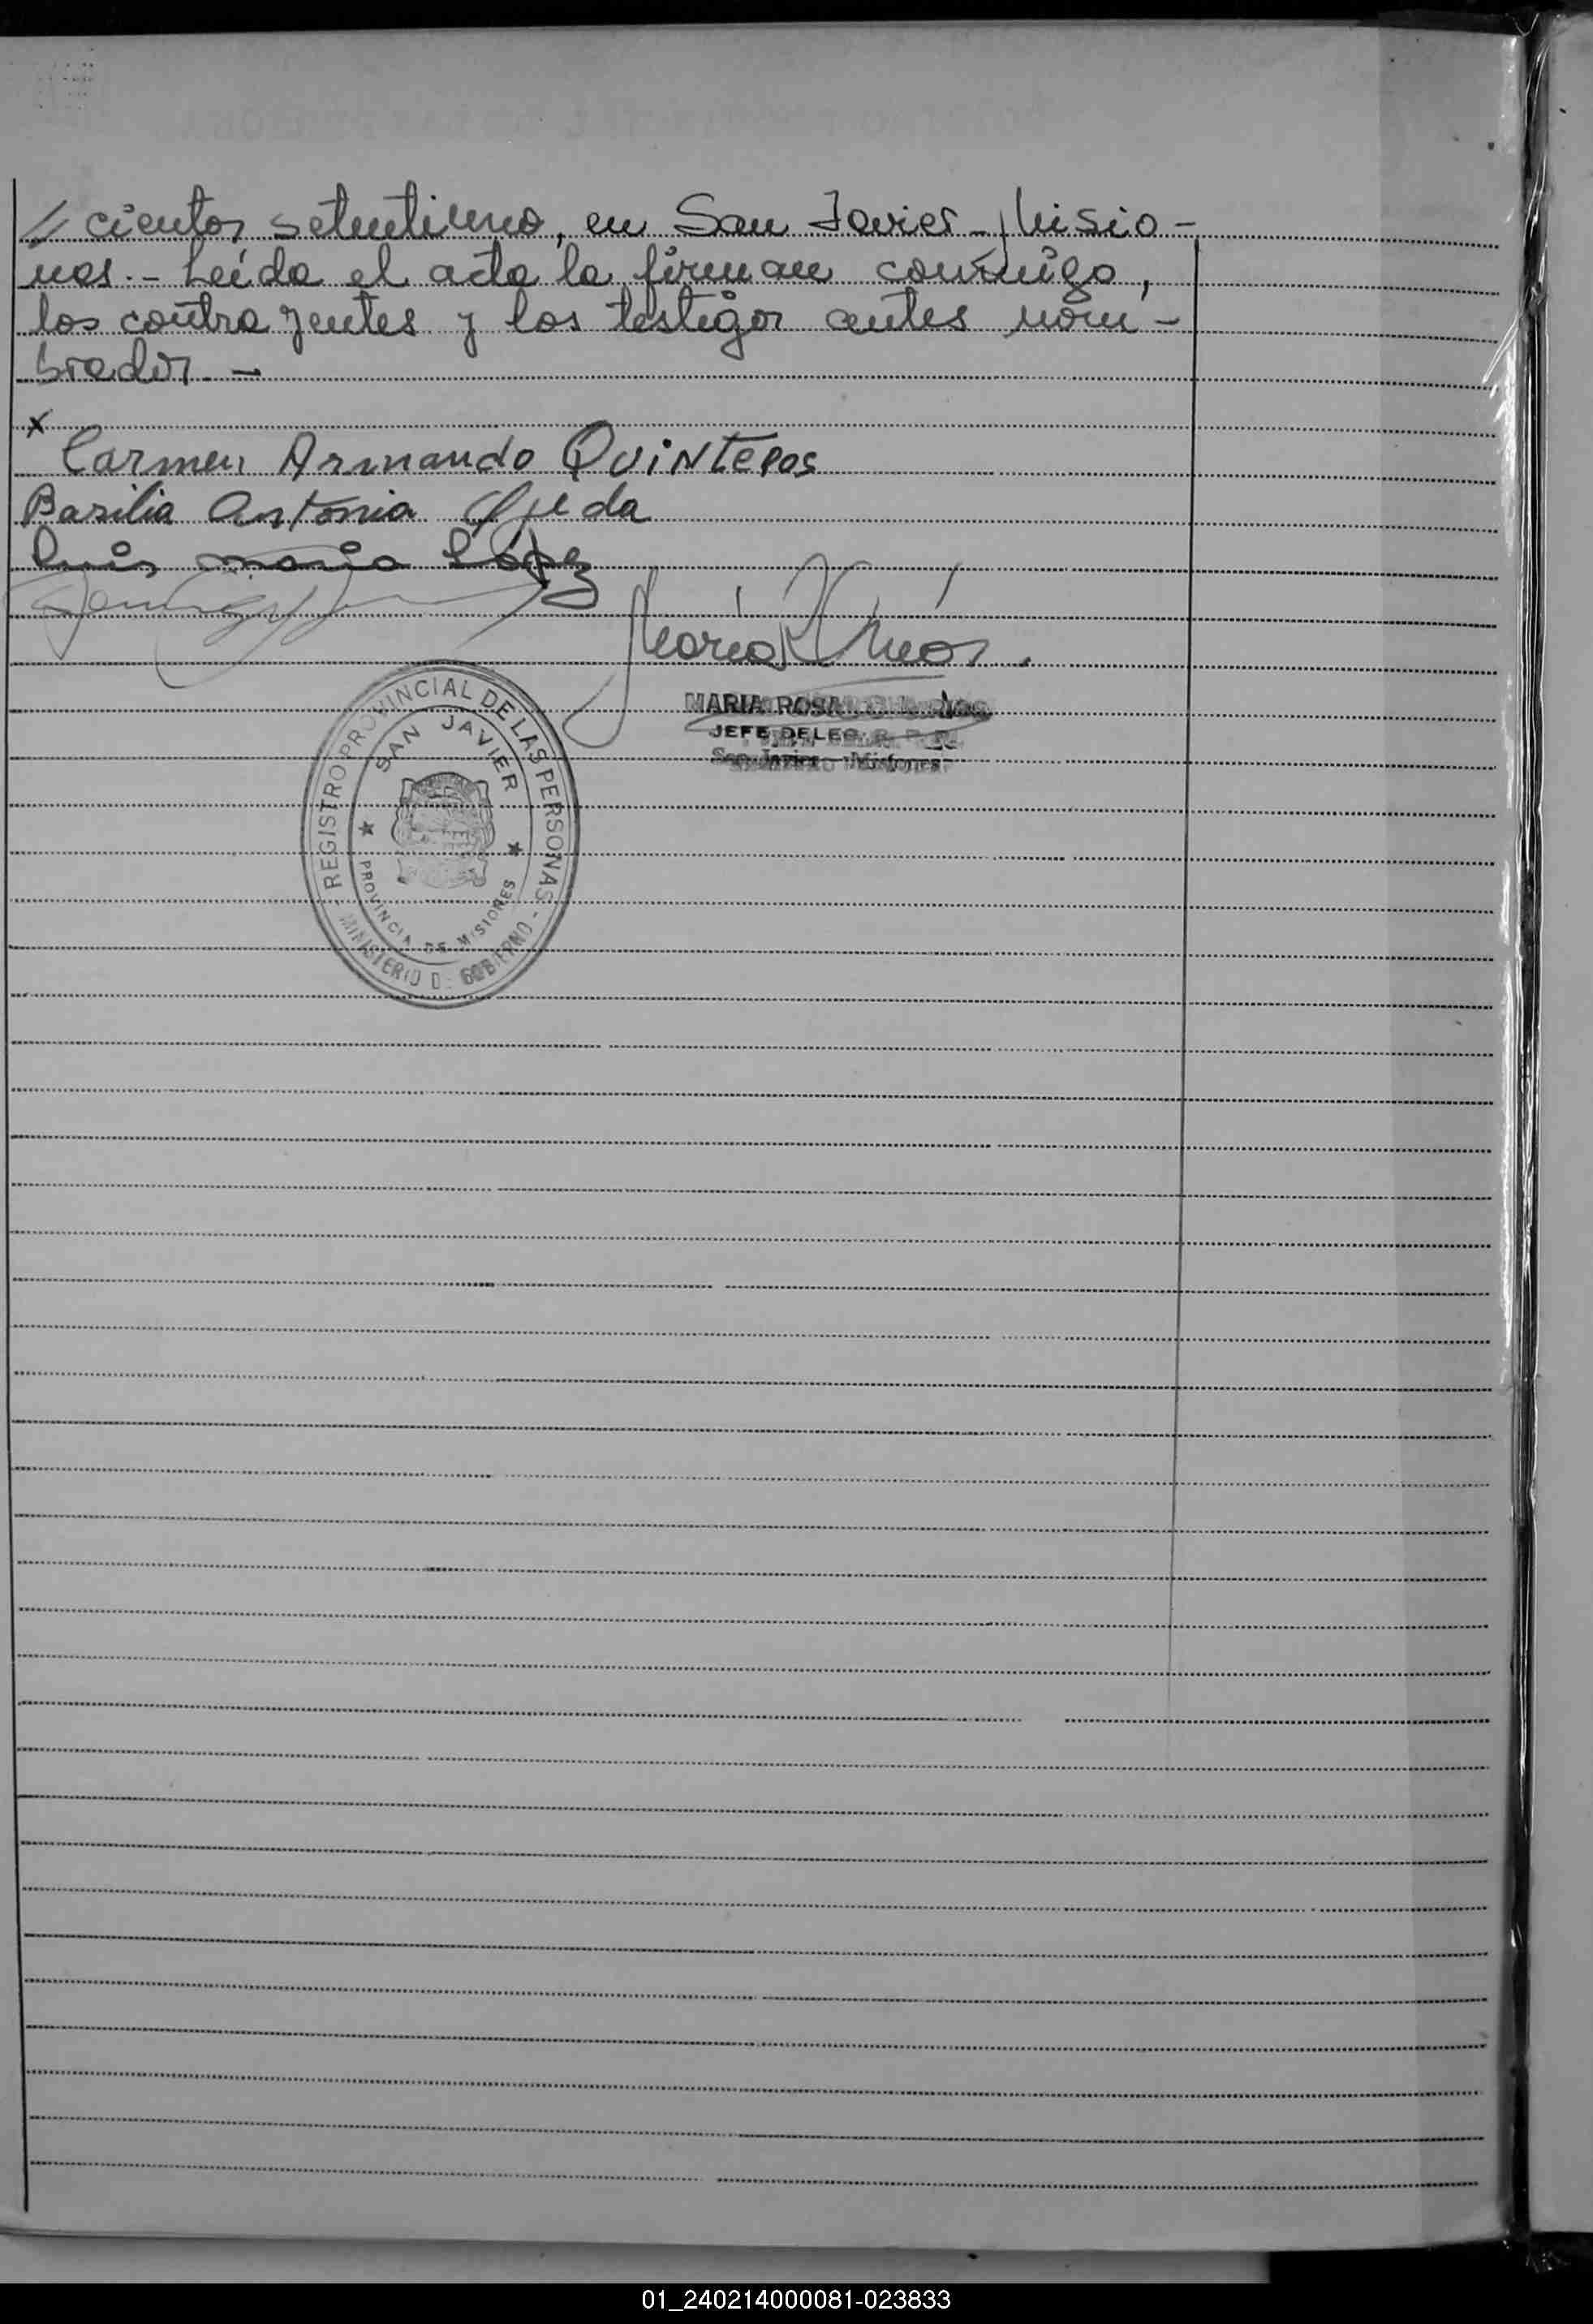 // cientos setentiuno, en San Javier - Misio -
nes. - Leída el acta la firman conmigo,
los contrayentes y los testigos antes nom -
brados. -
x
Carmen Armando QUiNteros
Basilia Antonia Ojeda
Luis maria Lopez
Maria
MARIA ROSA
JEFE DELEG. R. P. P.
San Javier - Misiones
REGISTRO PROVINCIAL DE LAS PERSONAS - MINISTERIO DE GOBIERNO -
SAN JAVIER
PROVINCIA DE MISIONES
01_240214000081-023833